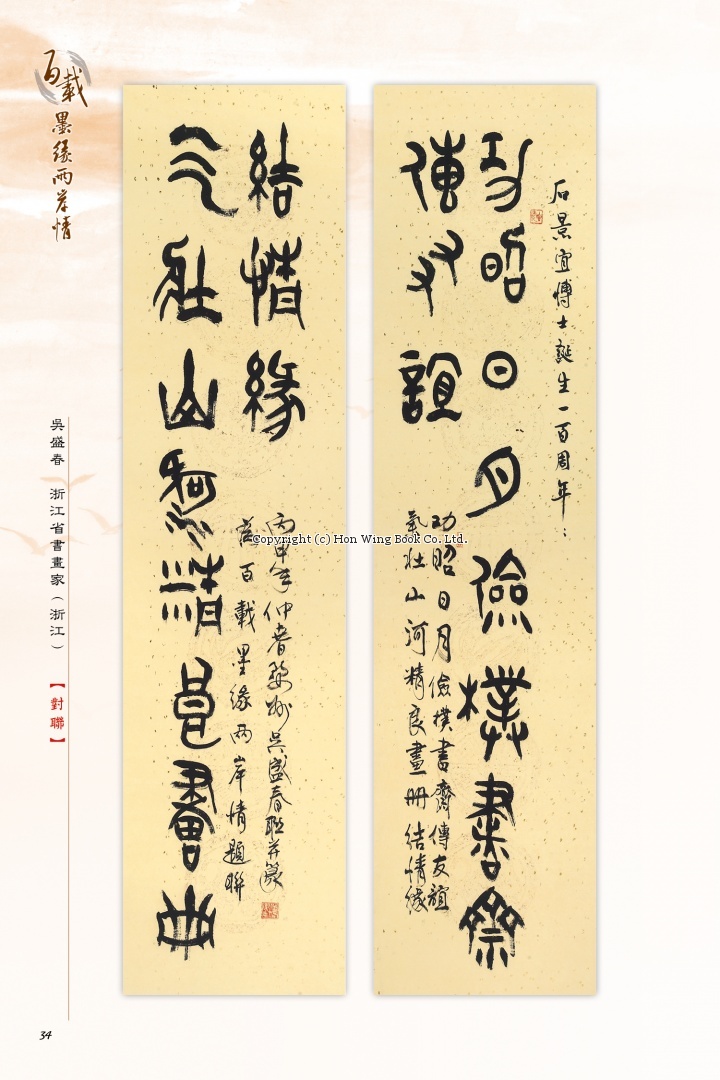 百載墨緣兩岸情
石景宜博士誕生一百周年：
功昭日月儉樸書齋
傳友誼
功昭日月儉樸書齋傳友誼
氣壯山河精良畫冊結情緣
氣壯山河精良畫冊
結情緣
丙申年仲春婺州吳盛春聯并篆
百載墨緣兩岸情題聯
Copyright (c) Hon Wing Book Co. Ltd.
吳盛春 浙江省書畫家（浙江）
【對聯】
34